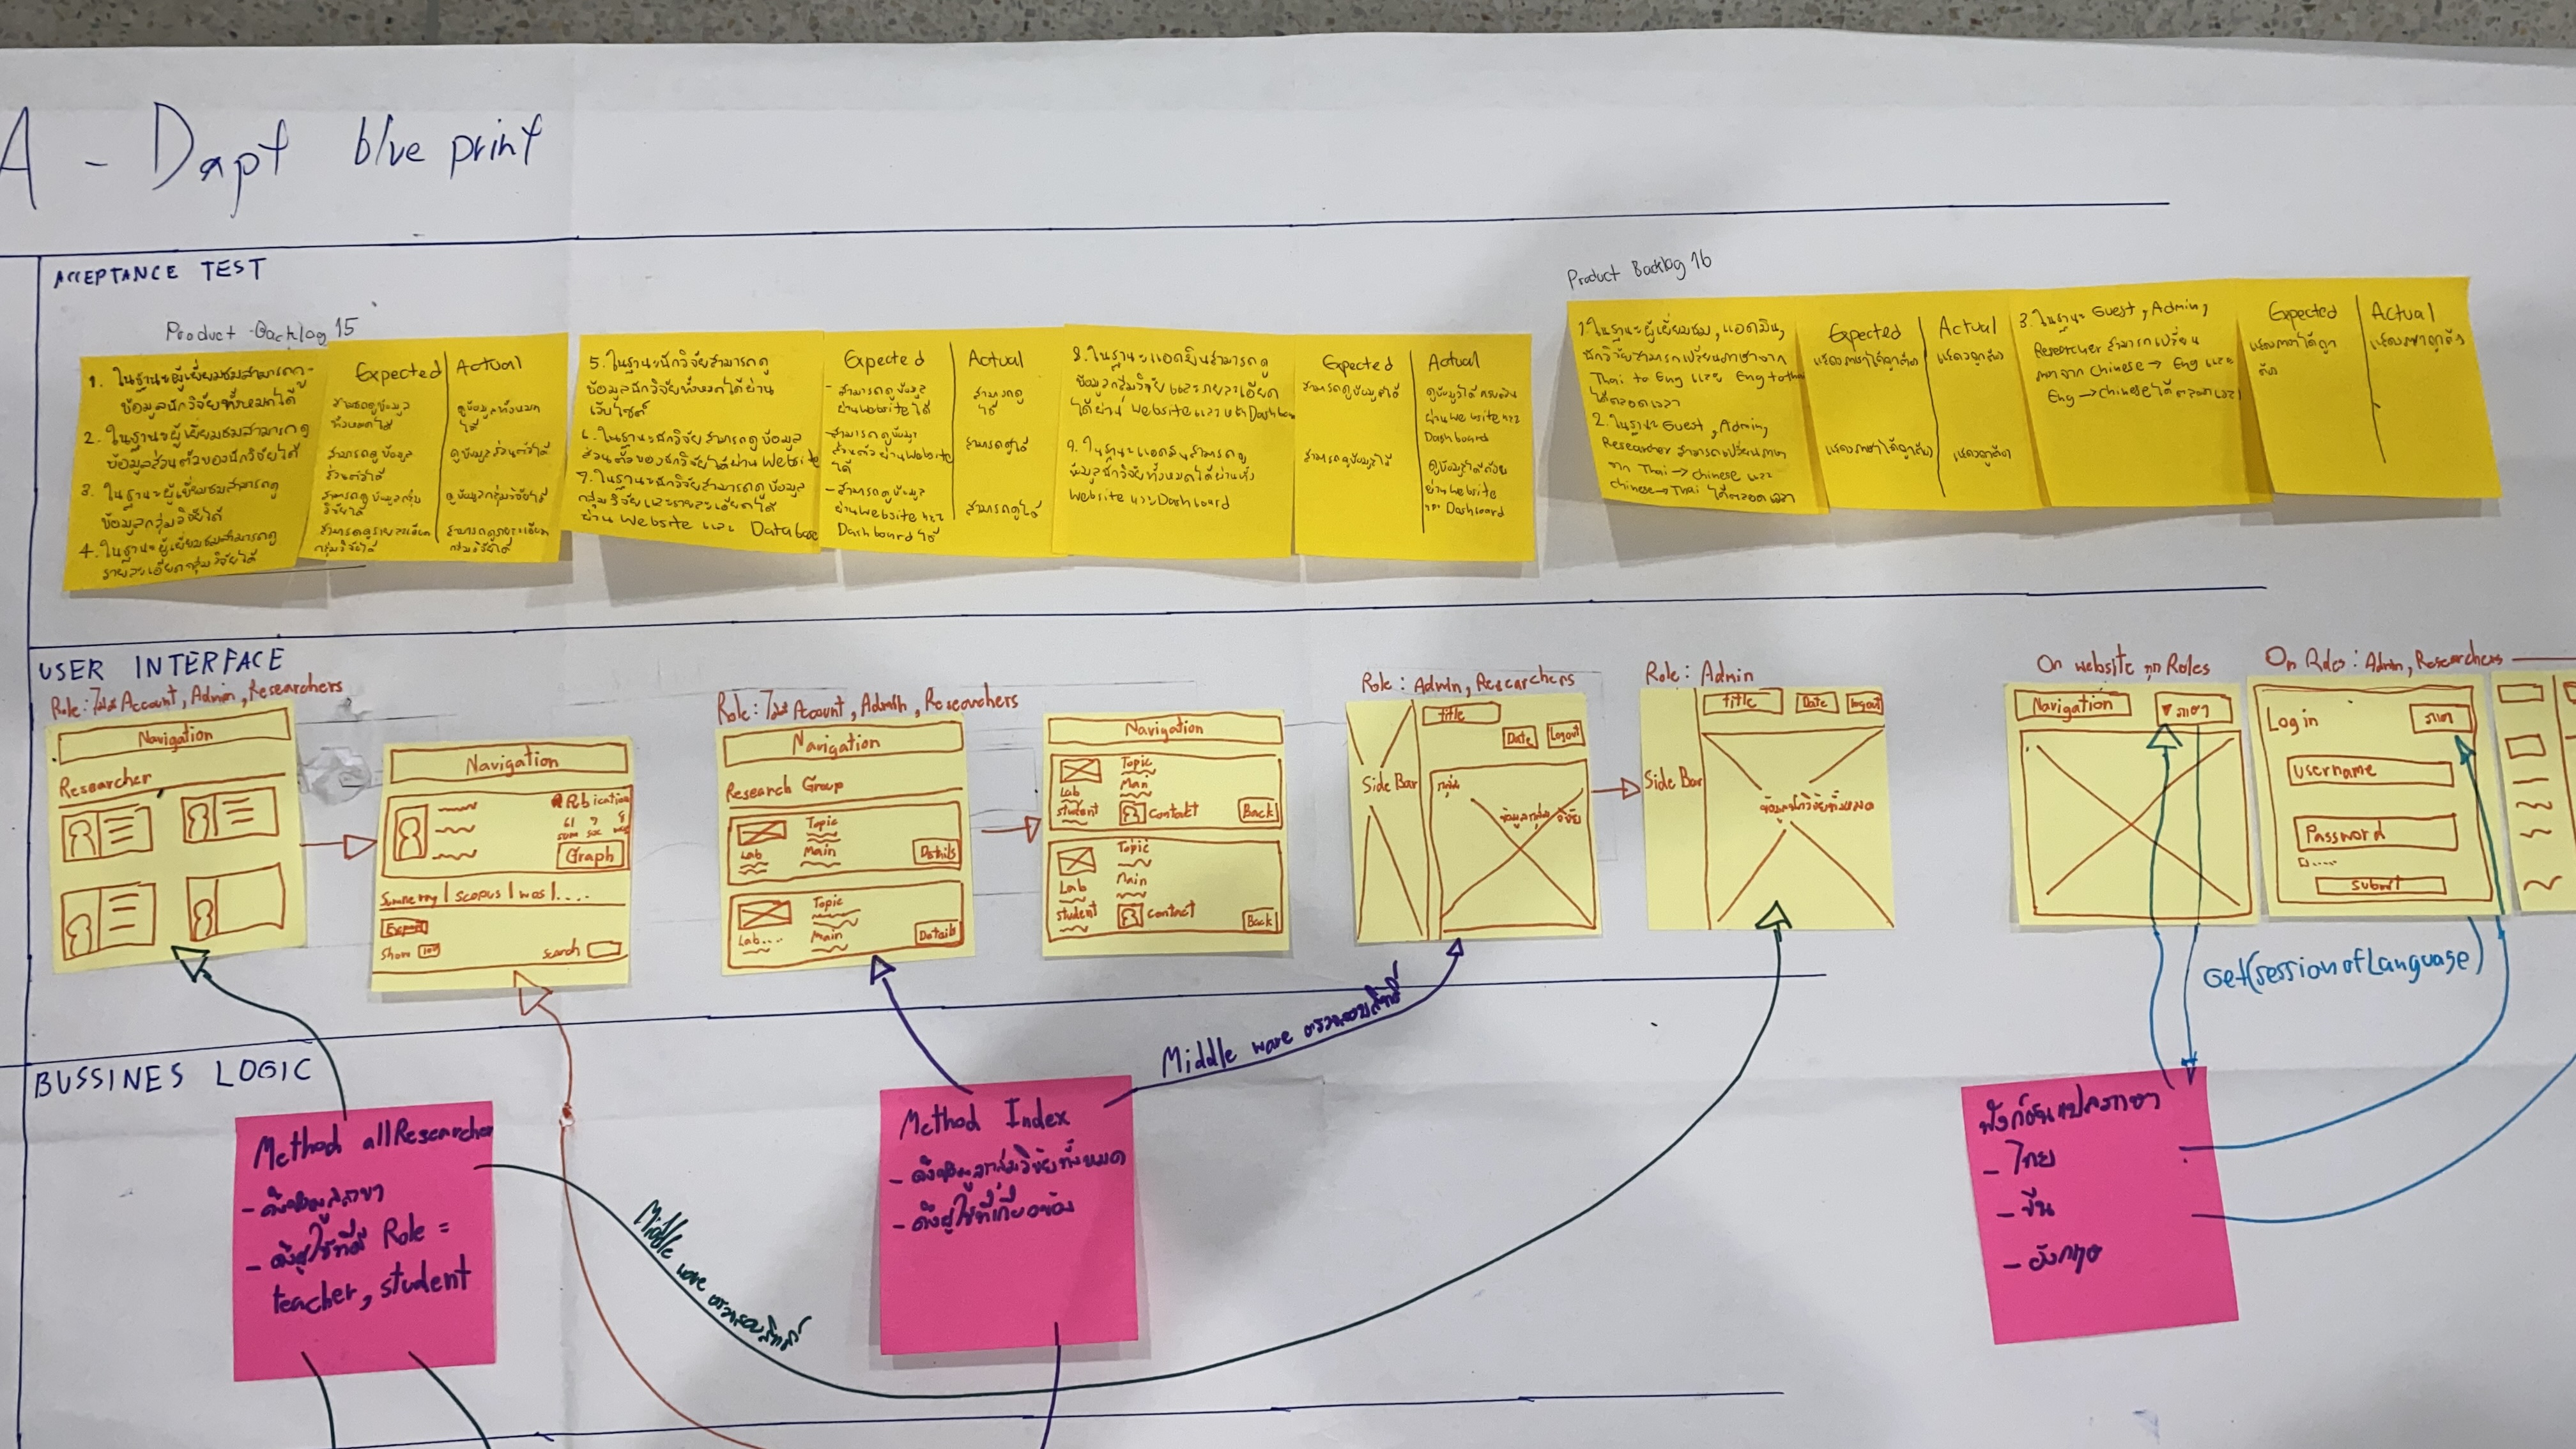 A - Dapt blue print
ACCEPTANCE TEST
Product Backlog 15
1. ในฐานะผู้เยี่ยมชมสามารถดู
ข้อมูลนักวิจัยทั้งหมดได้
2. ในฐานะผู้เยี่ยมชมสามารถดู
ข้อมูลส่วนตัวของนักวิจัยได้
3. ในฐานะผู้เยี่ยมชมสามารถดู
ข้อมูลกลุ่มวิจัยได้
4. ในฐานะผู้เยี่ยมชมสามารถดู
รายละเอียดกลุ่มวิจัยได้
Expected
สามารถดูข้อมูล
ทั้งหมดได้
สามารถดูข้อมูล
ส่วนตัวได้
สามารถดูข้อมูลกลุ่ม
วิจัยได้
สามารถดูรายละเอียด
กลุ่มวิจัยได้
Actual
ดูข้อมูลทั้งหมด
ได้
ดูข้อมูลส่วนตัวได้
ดูข้อมูลกลุ่มวิจัยได้
สามารถดูรายละเอียด
กลุ่มวิจัยได้
5. ในฐานะนักวิจัยสามารถดู
ข้อมูลนักวิจัยทั้งหมดได้ผ่าน
เว็บไซต์
6. ในฐานะนักวิจัยสามารถดูข้อมูล
ส่วนตัวของนักวิจัยได้ผ่าน Website
7. ในฐานะนักวิจัยสามารถดูข้อมูล
กลุ่มวิจัยและรายละเอียดได้
ผ่าน Website และ Database
Expected
- สามารถดูข้อมูล
ผ่าน Website ได้
- สามารถดูข้อมูล
ส่วนตัวผ่าน Website
ได้
- สามารถดูข้อมูล
ผ่าน Website และ
Dashboard ได้
Actual
สามารถดู
ได้
สามารถดูได้
สามารถดูได้
8. ในฐานะแอดมินสามารถดู
ข้อมูลกลุ่มวิจัย และรายละเอียด
ได้ผ่าน Website และ หน้า Dashboard
9. ในฐานะแอดมินสามารถดู
ข้อมูลนักวิจัยทั้งหมดได้ผ่านทั้ง
Website และ Dashboard
Expected
สามารถดูข้อมูลได้
สามารถดูข้อมูลได้
Actual
ผ่าน Website และ
Dashboard
ผ่าน Website
และ Dashboard
Product Backlog 16
1. ในฐานะผู้เยี่ยมชม, แอดมิน,
นักวิจัยสามารถเปลี่ยนภาษาจาก
Thai to Eng และ Eng to thai
ได้ตลอดเวลา
2. ในฐานะ Guest, Admin,
Researcher สามารถเปลี่ยนภาษา
จาก Thai → Chinese และ
Chinese → Thai ได้ตลอดเวลา
Expected
แสดงภาษาได้ถูกต้อง
แสดงภาษาได้ถูกต้อง
Actual
แสดงถูกต้อง
แสดงถูกต้อง
3. ในฐานะ Guest, Admin,
Researcher สามารถเปลี่ยน
ภาษาจาก Chinese → Eng และ
Eng → Chinese ได้ตลอดเวลา
Expected
แสดงภาษาได้ถูก
ต้อง
Actual
แสดงภาษาถูกต้อง
USER INTERFACE
Role: ไม่มี Account, Admin, Researchers
Navigation
Researcher
Navigation
Graph
Summary | scopus | wos | ....
Export
Show
Search
Role: ไม่มี Account, Admin, Researchers
Navigation
Research Group
Topic
Lab
Main
Details
Topic
Lab....
Main
Details
Navigation
Topic
Lab
Main
student
contact
Back
Topic
Lab
Main
student
contact
Back
Role: Admin, Researchers
title
Date
Logout
Side Bar
ข้อมูลกลุ่มวิจัย
Role: Admin
title
Date
logout
Side Bar
ข้อมูลนักวิจัยทั้งหมด
On website ทุก Roles
Navigation
▼ภาษา
On Roles: Admin, Researchers
Login
ภาษา
Username
Password
Submit
Get(sessionofLanguage)
BUSSINES LOGIC
Middle ware ตรวจสอบสิทธิ์
Method allResearcher
- ดึงข้อมูลสาขา
- ดึงผู้ใช้ที่มี Role =
teacher, student
Middle ware ตรวจสอบสิทธิ์
Method Index
- ดึงข้อมูลกลุ่มวิจัยทั้งหมด
- ดึงผู้ใช้ที่เกี่ยวข้อง
ฟังก์ชันแปลภาษา
- ไทย
- จีน
- อังกฤษ